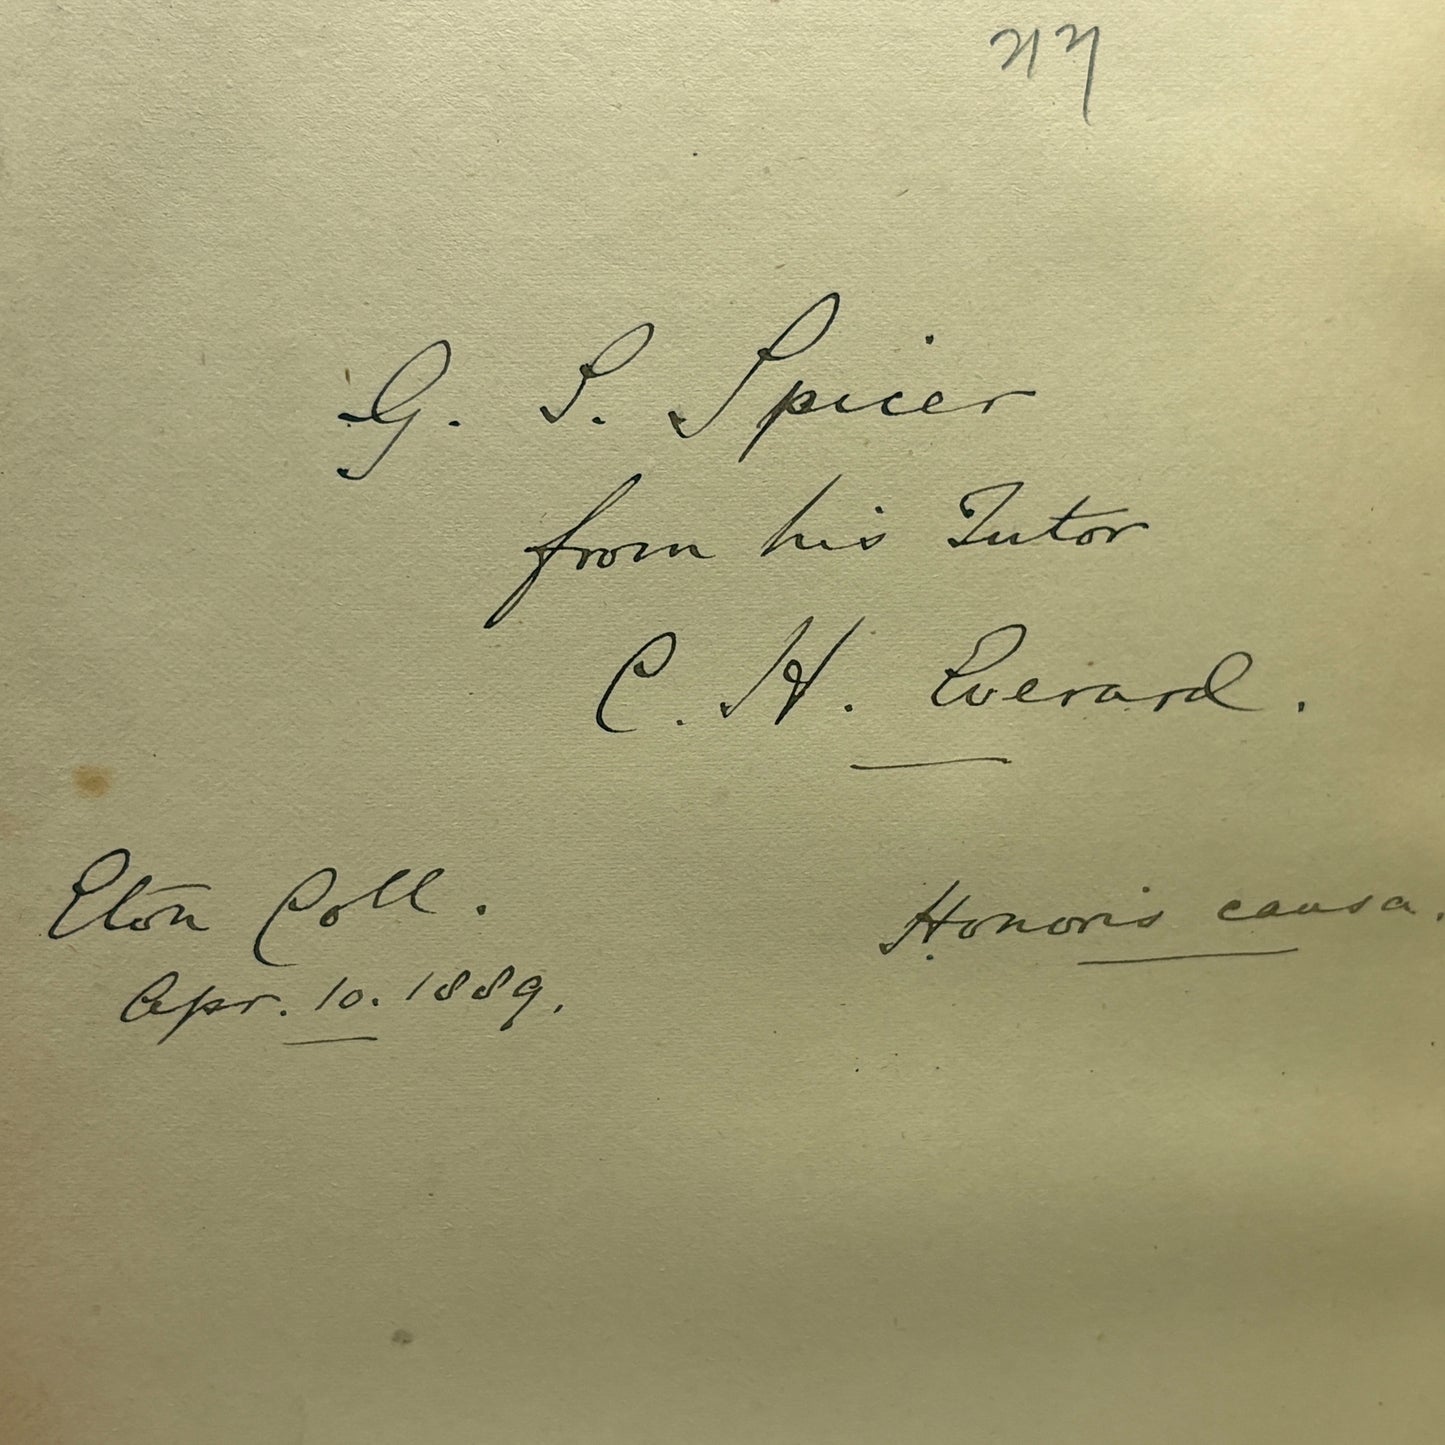 G. S. Spicer
from his Tutor
C. H. Everard.
Eton Coll.
Apr. 10. 1889.
Honoris causa.